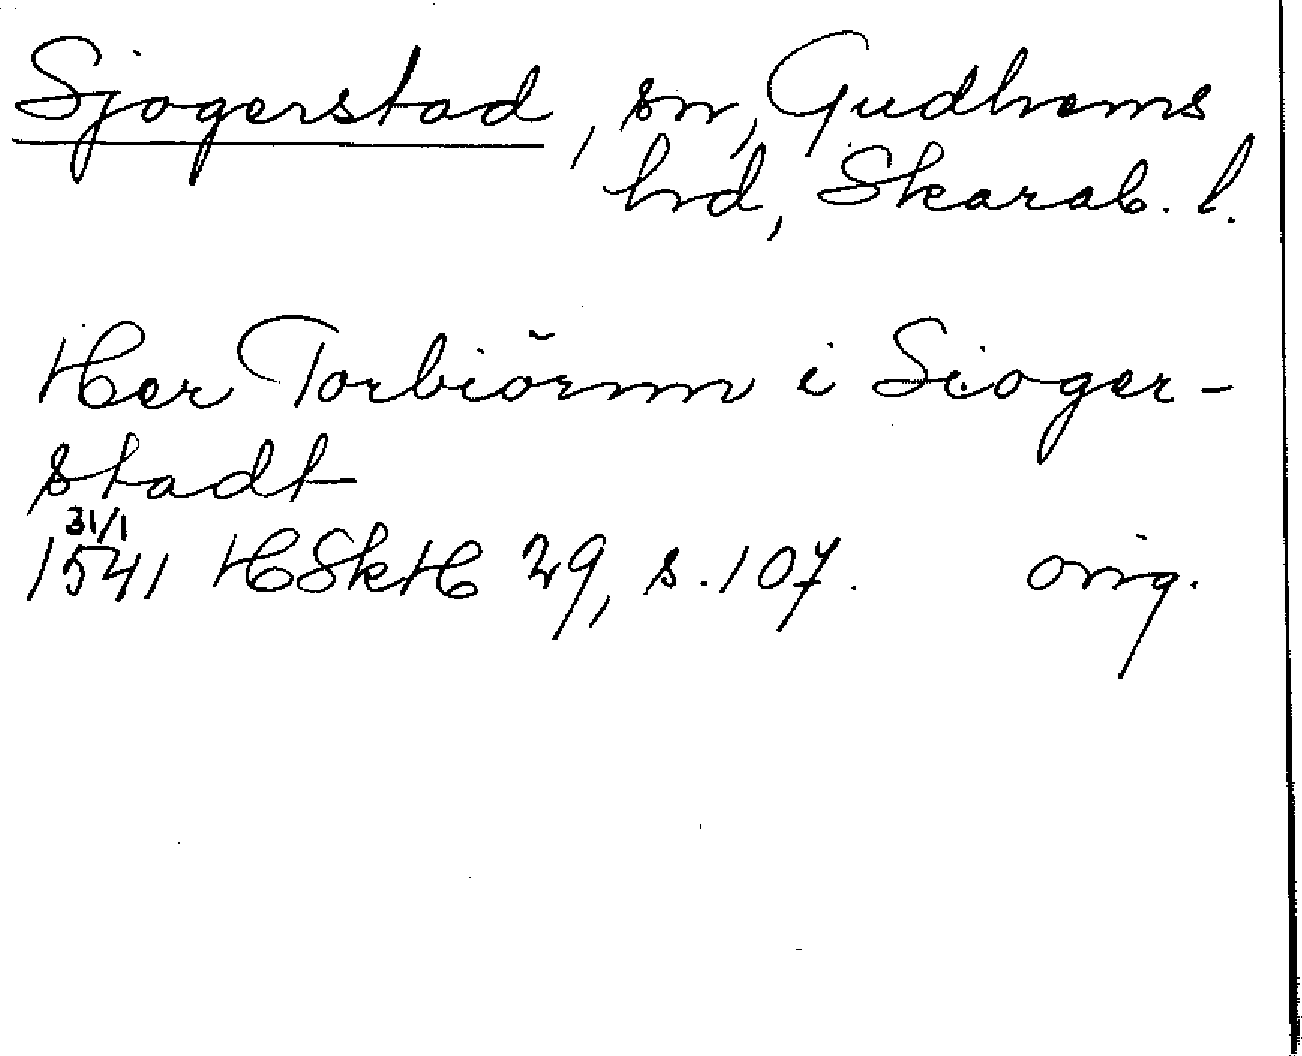 Sjogerstad, sn, Gudhems
hd, Skarab. l.
Her Torbiörnn i Sioger-
stadt
31/1
1541 HSkH 29, s. 107. orig.